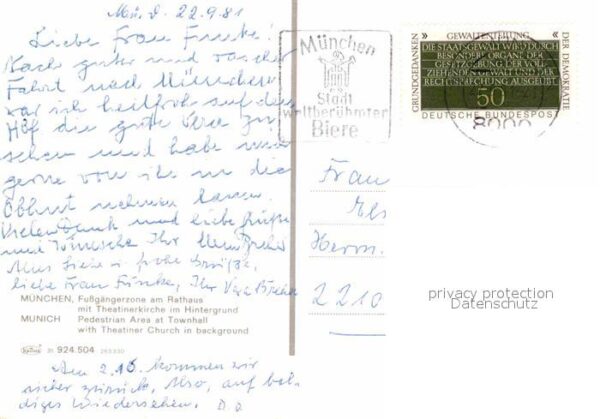 Mü, d. 22.9.81
Liebe Frau Fincke!
Nach guter und rascher
Fahrt nach München
war ich heilfroh auf dem
Hbf die gute Vera zu
sehen und habe mich
gerne von ihr in die
Obhut nehmen lassen.
Vielen Dank und liebe Grüße
und Wünsche Ihr
liebe Frau Fincke, Ihr Vera
MÜNCHEN, Fußgängerzone am Rathaus
mit Theatinerkirche im Hintergrund
MUNICH Pedestrian Area at Townhall
with Theatiner Church in background
31 924.504
Am 2.10. kommen wir
wieder zurück. Also, auf bal-
diges Wiedersehen. D.O.
München
Stadt
weltberühmter
Biere
GEWALTENTEILUNG
GRUNDGEDANKEN
DER DEMOKRATIE
DIE STAATSGEWALT WIRD DURCH
BESONDERE ORGANE DER
GESETZGEBUNG DER VOLL
ZIEHENDEN GEWALT UND DER
RECHTSPRECHUNG AUSGEÜBT
50
DEUTSCHE BUNDESPOST
8000
Frau
Herm.
2210
privacy protection
Datenschutz